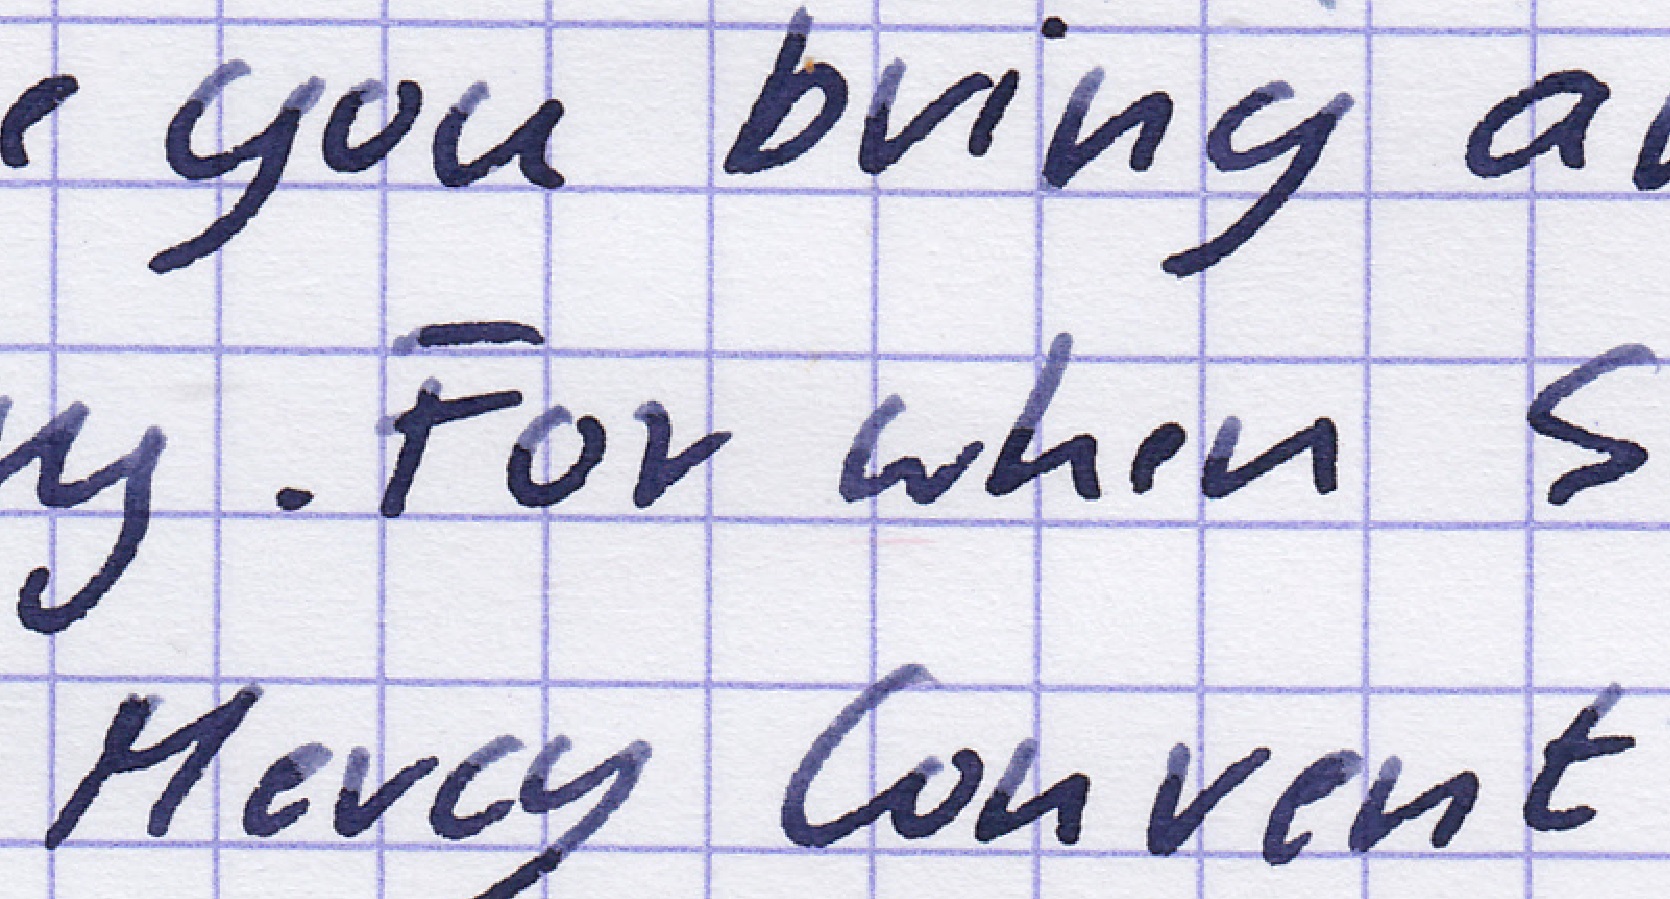 e you bring a
y. For when S
Mercy Convent